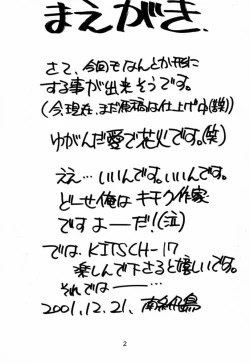 まえがき、
さて、今回もなんとか形に
する事が出来そうです。
(今現在、まだ原稿は仕上げ中(誤))
ゆがんだ愛で花火です。(笑)
ええ…いいんです。いいんです。
どーせ俺はキチク作家
ですよーだ!(泣)
では、KITSCH-17
楽しんで下さると嬉しいです。
それでは――…
2001.12.21、
2